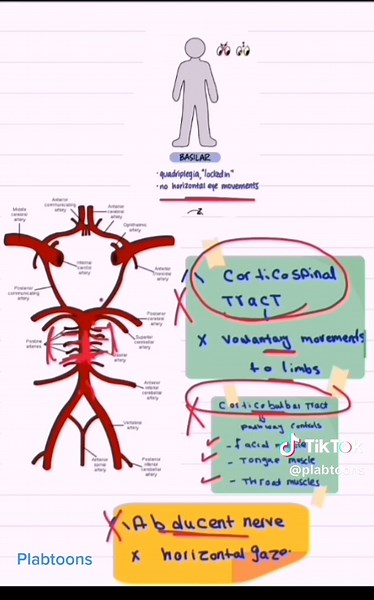 BASILAR
· quadriplegia, "locked in"
· no horizontal eye movements
Anterior communicating artery
Middle cerebral artery
Anterior cerebral artery
Ophthalmic artery
Internal carotid artery
Anterior choroidal artery
Posterior communicating artery
Posterior cerebral artery
Pontine arteries
Superior cerebellar artery
artery
Anterior inferior cerebellar artery
Vertebral artery
Anterior spinal artery
Posterior inferior cerebellar artery
Corticospinal
Tract
x voluntary movements
to limbs
Corticobulbar Tract
pathway controls
- facial
- Tongue muscle
- Throat muscles
TikTok
@plabtoons
Abducent nerve
x horizontal gaze.
Plabtoons